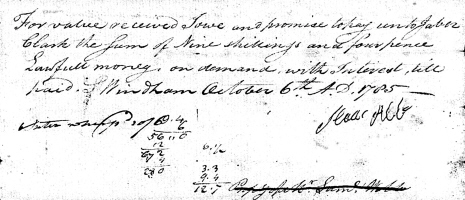 For value received I owe and promise to pay unto Jabez
Clark the sum of Nine shillings and four pence
Lawfull money, on demand, with Interest, till
paid. Windham October 6th A.D. 1785
Isaac Abbe
9.4
6
56..0
12
672
4
6.1/2
3.3
9.4
12.7